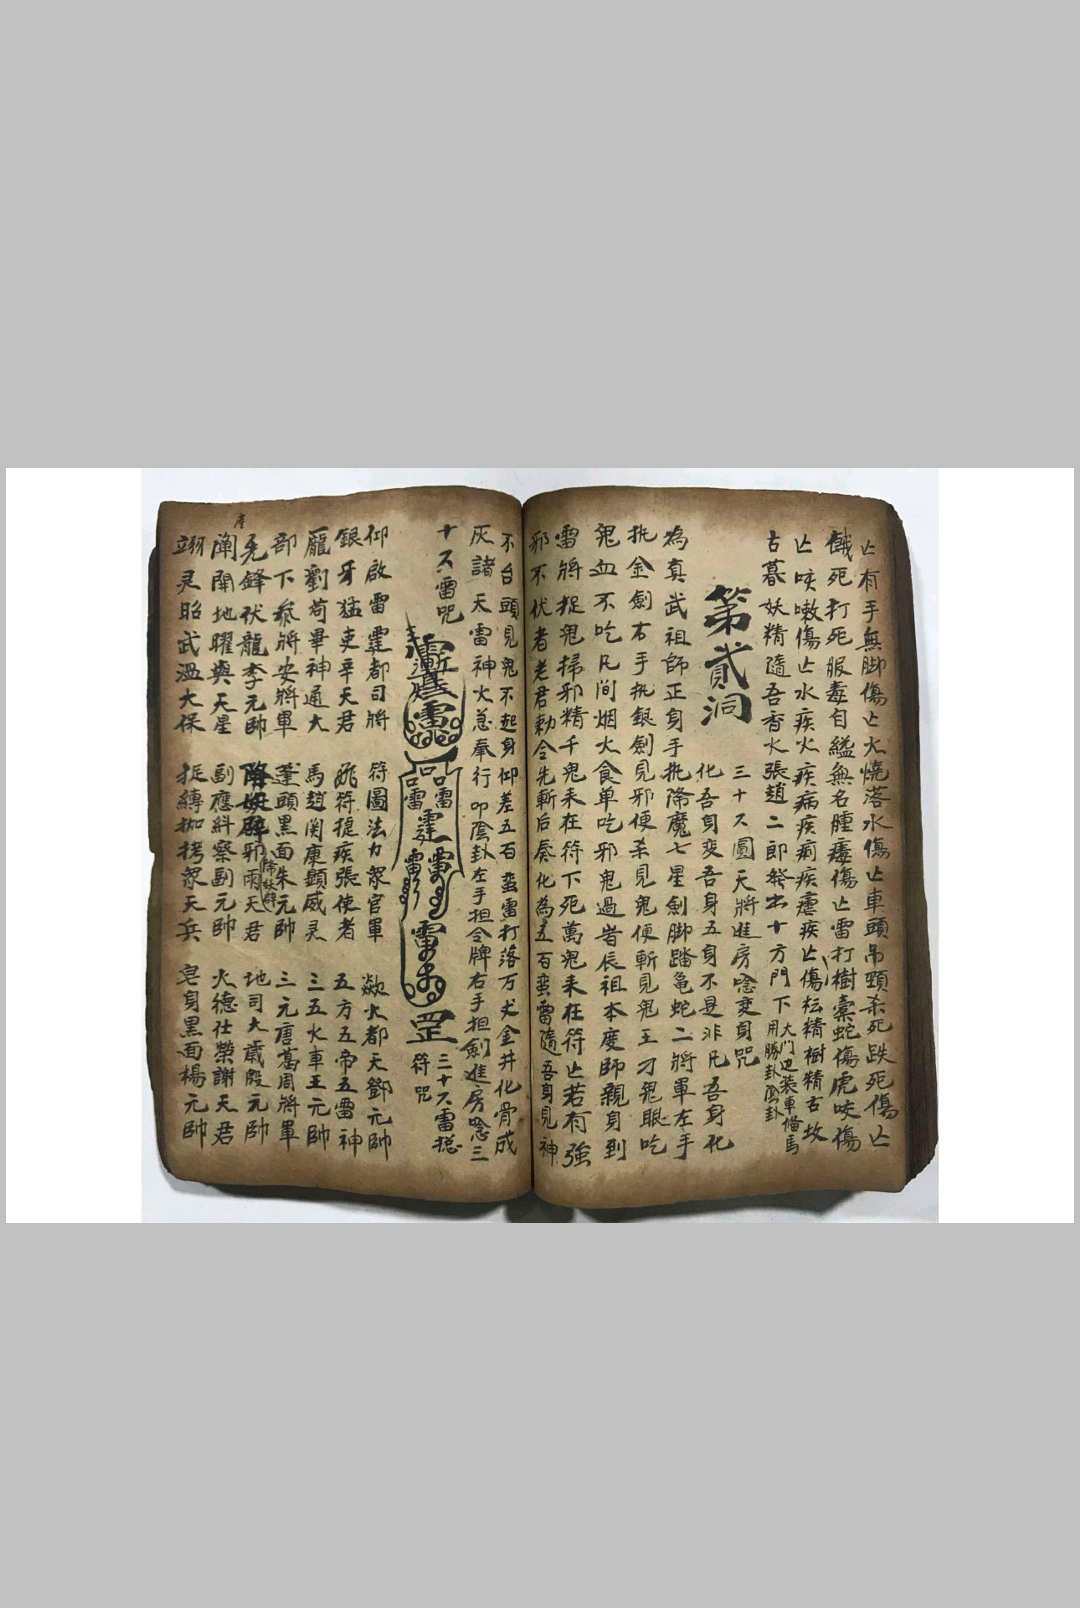 亡有手無脚傷亡火燒落水傷亡車頭吊頸杀死跌死傷亡
餓死打死服毒自縊無名腫𤸱傷亡雷打樹𣡸蛇傷虎咬傷
亡咳嗽傷亡水疾火疾病疾痢疾瘧疾亡傷枟精樹精古坟
古墓妖精隨吾香火張趙二郎發出十方門下
大門边裝車備馬
用勝卦陰卦
第貳洞
三十六圓天將進房唸变身咒
化吾身变吾身吾身不是非凡吾身化
為真武祖師正身手执降魔七星劍脚踏龟蛇二將軍左手
执金劍右手执銀劍見邪便杀見鬼便斬見鬼王刁鬼眼吃
鬼血不吃凡间烟火食单吃邪鬼過岩辰祖本度師親身到
雷將捉鬼掃邪精千鬼耒在符下死萬鬼耒在符亡若有強
邪不伏者老君勅令先斬后奏化為五百蛮雷隨吾身見神
不台頭見鬼不起身仰差五百蛮雷打落万丈金井化骨成
灰諸天雷神火急奉行叩陰卦左手担令牌右手担劍進房唸三
十六雷咒
三十六雷總
符咒
仰啟雷霆都司將 符圖法力眾官軍 歘火都天鄧元帥
銀牙猛吏辛天君 飛符捉疾張使者 五方五帝五雷神
龐劉苟畢神通大 馬趙関康顕威灵 三五火車王元帥
部下叅將安將軍 蓬頭黑面朱元帥 三元唐葛周將軍
先鋒伏龍李元帥 邪雨天君 地司太歲殷元帥
闡開地曜與天星 副應糾察副元帥 火德仕榮謝天君
翊灵昭武温大保 捉縛枷拷眾天兵 皂身黑面楊元帥